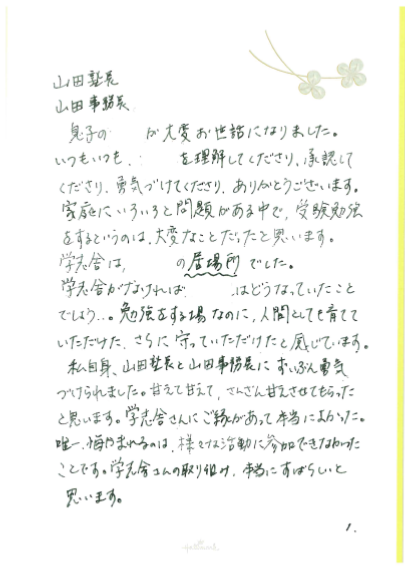 山田塾長
山田事務長
息子の が大変お世話になりました。
いつもいつも、 を理解してくださり、承認して
くださり、勇気づけてくださり、ありがとうございます。
家庭にいろいろと問題がある中で、受験勉強
をするというのは、大変なことだったと思います。
学志舎は、 の居場所でした。
学志舎がなければ はどうなっていたこと
でしょう…。勉強をする場なのに、人間としても育てて
いただけた、さらに守っていただけたと感じています。
私自身、山田塾長と山田事務長にずいぶん勇気
づけられました。甘えて甘えて、さんざん甘えさせてもらった
と思います。学志舎さんにご縁があって本当によかった。
唯一、悔やまれるのは、様々な活動に参加できなかった
ことです。学志舎さんの取り組み、本当にすばらしいと
思います。
1.
Hallmark